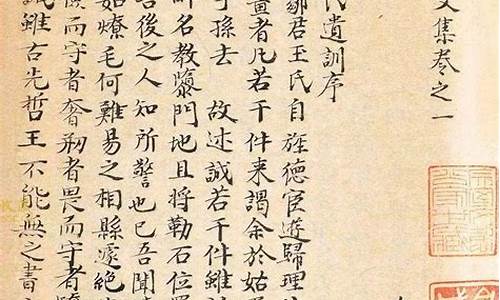 文集卷之一
氏遺訓序
鄒君王氏自旌德宦遊歸理
者凡若干件来謁余於姑
子孫去 故述誡若干件雖
名教隳門地且將勒石位
後之人知所警也已吾聞
如燎毛何難易之相縣遼絶
而守者奢刱者畏而守者
誡雖古先哲王不能無之書